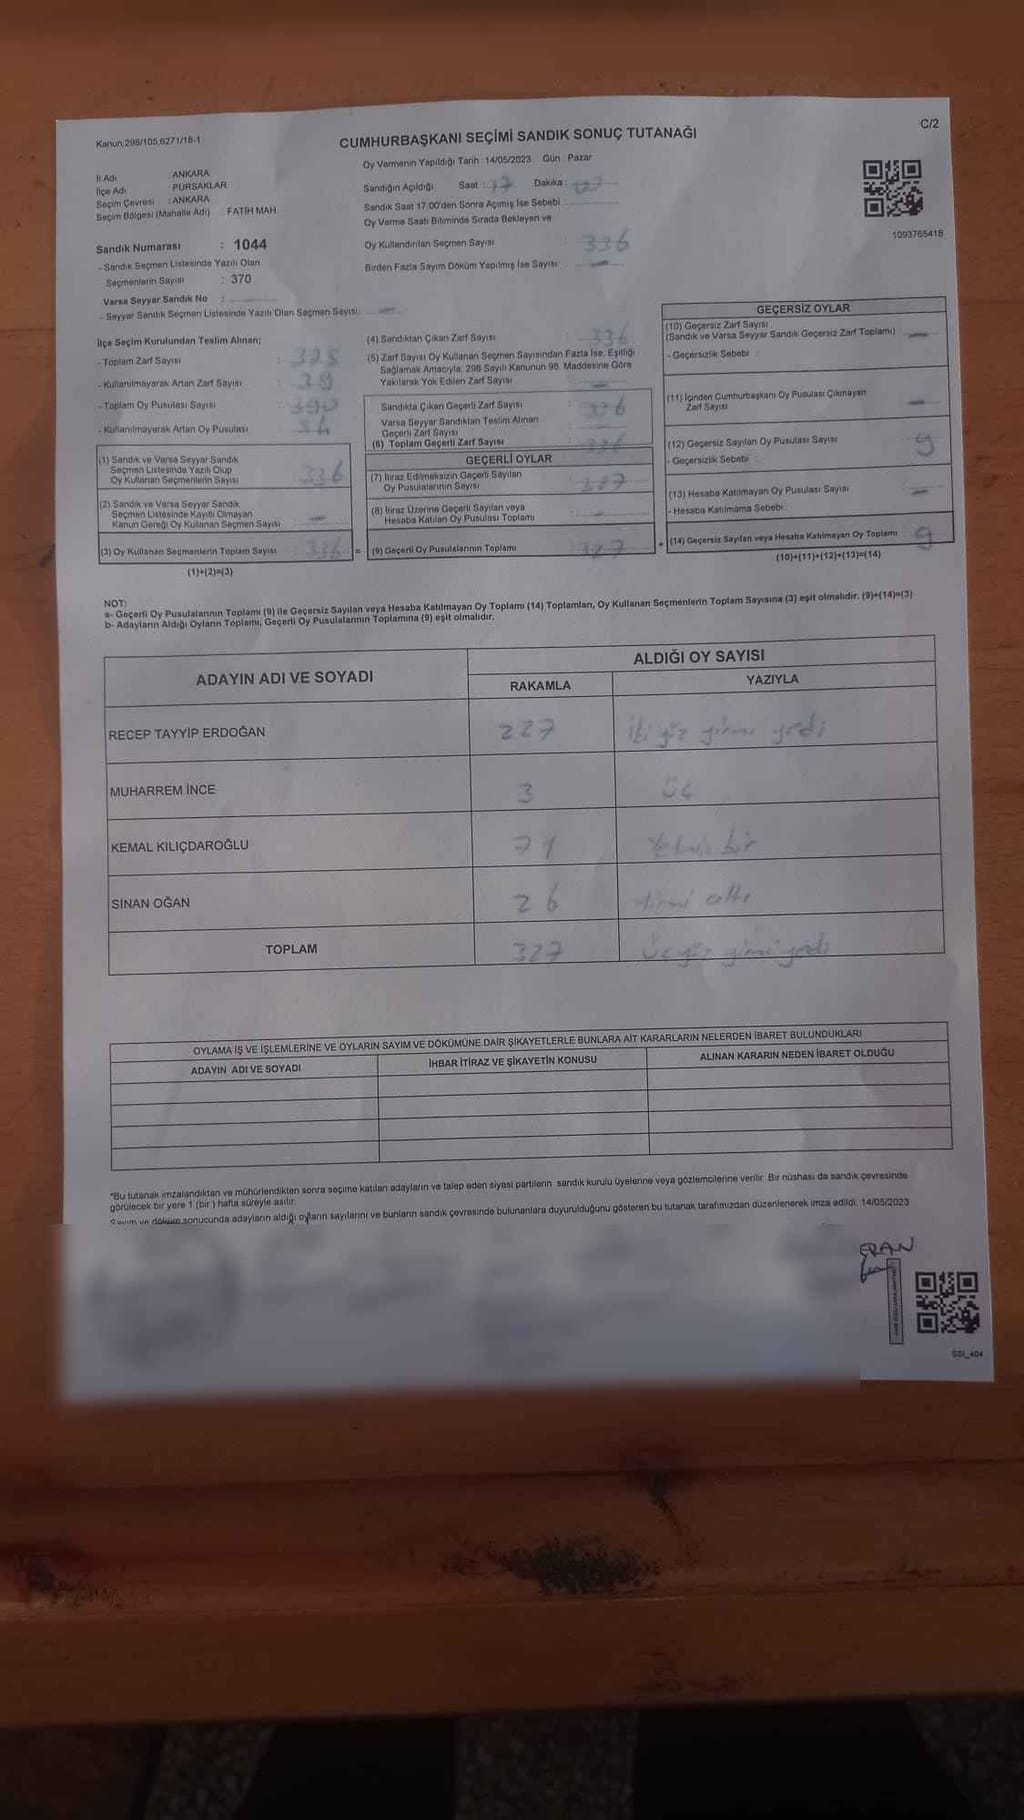 Kanun,298/105,6271/18-1
C/2
CUMHURBAŞKANI SEÇİMİ SANDIK SONUÇ TUTANAĞI
Oy Vermenin Yapıldığı Tarih 14/05/2023 Gün : Pazar
İl Adı : ANKARA
İlçe Adı : PURSAKLAR
Seçim Çevresi : ANKARA
Seçim Bölgesi (Mahalle Adı) FATİH MAH
Sandığın Açıldığı Saat : 17 Dakika :
Sandık Saat 17.00'den Sonra Açımış İse Sebebi
Oy Verme Saati Bitiminde Sırada Bekleyen ve
Oy Kullandırılan Seçmen Sayısı : 336
Birden Fazla Sayım Döküm Yapılmış İse Sayısı : —
1093765418
Sandık Numarası : 1044
- Sandık Seçmen Listesinde Yazılı Olan
Seçmenlerin Sayısı : 370
Varsa Seyyar Sandık No :
- Seyyar Sandık Seçmen Listesinde Yazılı Olan Seçmen Sayısı: —
İlçe Seçim Kurulundan Teslim Alınan;
- Toplam Zarf Sayısı :
- Kullanılmayarak Artan Zarf Sayısı : 39
- Toplam Oy Pusulası Sayısı : 390
- Kullanılmayarak Artan Oy Pusulası : 54
(1) Sandık ve Varsa Seyyar Sandık
Seçmen Listesinde Yazılı Olup
Oy Kullanan Seçmenlerin Sayısı : 336
(2) Sandık ve Varsa Seyyar Sandık
Seçmen Listesinde Kayıtlı Olmayan
Kanun Gereği Oy Kullanan Seçmen Sayısı : —
(3) Oy Kullanan Seçmenlerin Toplam Sayısı : 336 =
(1)+(2)=(3)
(4) Sandıktan Çıkan Zarf Sayısı : 336
(5) Zarf Sayısı Oy Kullanan Seçmen Sayısından Fazla İse, Eşitliği
Sağlamak Amacıyla, 298 Sayılı Kanunun 98. Maddesine Göre
Yakılarak Yok Edilen Zarf Sayısı : —
Sandıkta Çıkan Geçerli Zarf Sayısı : 336
Varsa Seyyar Sandıktan Teslim Alınan
Geçerli Zarf Sayısı
(6) Toplam Geçerli Zarf Sayısı : 336
GEÇERLİ OYLAR
(7) İtiraz Edilmeksizin Geçerli Sayılan
Oy Pusulalarının Sayısı : 327
(8) İtiraz Üzerine Geçerli Sayılan veya
Hesaba Katılan Oy Pusulası Toplamı : —
(9) Geçerli Oy Pusulalarının Toplamı : 327
GEÇERSİZ OYLAR
(10) Geçersiz Zarf Sayısı
(Sandık ve Varsa Seyyar Sandık Geçersiz Zarf Toplamı) : —
- Geçersizlik Sebebi :
(11) İçinden Cumhurbaşkanı Oy Pusulası Çıkmayan
Zarf Sayısı : —
(12) Geçersiz Sayılan Oy Pusulası Sayısı : 9
- Geçersizlik Sebebi :
(13) Hesaba Katılmayan Oy Pusulası Sayısı : —
- Hesaba Katılmama Sebebi :
+ (14) Geçersiz Sayılan veya Hesaba Katılmayan Oy Toplamı : 9
(10)+(11)+(12)+(13)=(14)
NOT:
a- Geçerli Oy Pusulalarının Toplamı (9) ile Geçersiz Sayılan veya Hesaba Katılmayan Oy Toplamı (14) Toplamları, Oy Kullanan Seçmenlerin Toplam Sayısına (3) eşit olmalıdır. (9)+(14)=(3)
b- Adayların Aldığı Oyların Toplamı, Geçerli Oy Pusulalarının Toplamına (9) eşit olmalıdır.
ADAYIN ADI VE SOYADI
ALDIĞI OY SAYISI
RAKAMLA YAZIYLA
RECEP TAYYİP ERDOĞAN 227 iki yüz yirmi yedi
MUHARREM İNCE 3 üç
KEMAL KILIÇDAROĞLU 71 Yetmiş bir
SİNAN OĞAN 26 Yirmi altı
TOPLAM 327 Üçyüz yirmi yedi
OYLAMA İŞ VE İŞLEMLERİNE VE OYLARIN SAYIM VE DÖKÜMÜNE DAİR ŞİKAYETLERLE BUNLARA AİT KARARLARIN NELERDEN İBARET BULUNDUKLARI
ADAYIN ADI VE SOYADI İHBAR İTİRAZ VE ŞİKAYETİN KONUSU ALINAN KARARIN NEDEN İBARET OLDUĞU
*Bu tutanak imzalandıktan ve mühürlendikten sonra seçime katılan adayların ve talep eden siyasi partilerin sandık kurulu üyelerine veya gözlemcilerine verilir. Bir nüshası da sandık çevresinde
görülecek bir yere 1 (bir ) hafta süreyle asılır.
Sayım ve döküm sonucunda adayların aldığı oyların sayılarını ve bunların sandık çevresinde bulunanlara duyurulduğunu gösteren bu tutanak tarafımızdan düzenlenerek imza edildi. 14/05/2023
SSI_404